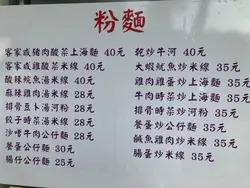 粉麵
客家咸豬肉酸菜上海麵 40元
客家咸雞酸菜米線 40元
酸辣魷魚湯米線 28元
麻辣雞肉湯米線 28元
排骨豆卜湯河粉 28元
餃子時菜湯米線 28元
沙嗲牛肉公仔麵 30元
餐蛋公仔麵 30元
腸仔公仔麵 25元
乾炒牛河 40元
大蝦魷魚炒米線 35元
雞肉雞蛋炒上海麵 35元
牛肉時菜炒上海麵 35元
排骨時菜炒河粉 35元
餐蛋炒公仔麵 35元
鹹魚雞肉炒米線 35元
腸蛋炒米線 35元